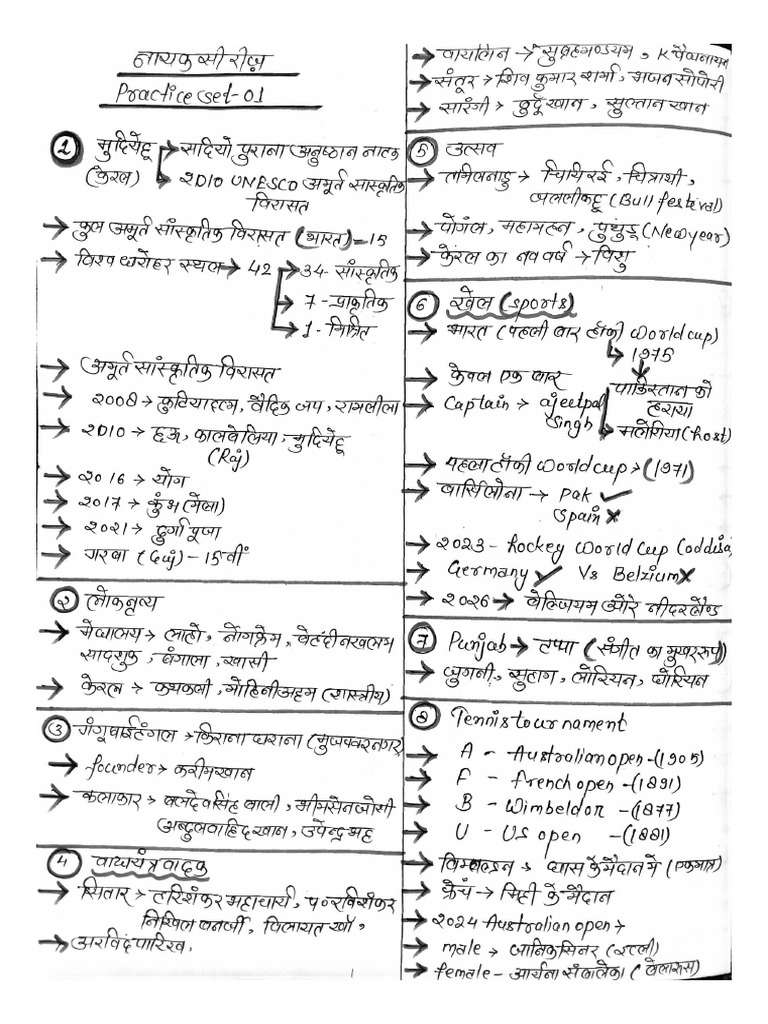 नायक सीरीज़
Practice set-01
1 मुदियेट्टू → सदियो पुराना अनुष्ठान नाटक
(केरल) → 2010 UNESCO अमूर्त सांस्कृतिक
विरासत
→ कुल अमूर्त सांस्कृतिक विरासत (भारत) - 15
→ विश्व धरोहर स्थल → 42 → 34- सांस्कृतिक
→ 7 - प्राकृतिक
→ 1 - मिश्रित
→ अमूर्त सांस्कृतिक विरासत
→ 2008 → कुटियाट्टम, वैदिक जप, रामलीला
→ 2010 → छऊ, कालबेलिया, मुदियेट्टू
(Raj)
→ 2016 → योग
→ 2017 → कुंभ (मेला)
→ 2021 → दुर्गा पूजा
→ गरबा (Guj) - 15वीं
2 लोकनृत्य
→ मेघालय → लाहो, नोंगक्रेम,
बंगाला, खासी
→ केरल → कथकली, मोहिनीअट्टम (शास्त्रीय)
3 गंगूबाई हंगल → किराना घराना (मुजफ्फरनगर)
→ founder → करीमखान
→ कलाकार → बलदेवसिंह बाली, भीमसेन जोशी
अब्दुल वाहिद खान, उपेन्द्र भट्ट
4 वाद्ययंत्र वादक
→ सितार → हरिशंकर भट्टाचार्य, पं० रविशंकर
निखिल बनर्जी, विलायत खाँ,
→ अरविंद पारिख,
→ वायलिन → सुब्रह्मण्यम, K वैद्यनाथन
→ संतूर → शिव कुमार शर्मा, भजन सोपोरी
→ सारंगी → सुल्तान खान
5 उत्सव
→ तमिलनाडु → चिथिरई, चित्रायी,
जल्लीकट्टू (Bull festival)
→ पोंगल, महामहम, पुथंडू (New year)
→ केरल का नव वर्ष → विशु
6 खेल (sports)
→ भारत (पहली बार हॉकी world cup)
→ 1975
→ केवल एक बार
पाकिस्तान को
हराया
→ Captain → ajeetpal
Singh
→ मलेशिया (host)
→ पहला हॉकी world cup → (1971)
→ बार्सिलोना → Pak ✓
Spain ✗
→ 2023 - hockey World Cup (oddisa)
→ Germany ✓ Vs Belzium ✗
→ 2026 → बेल्जियम ओर नीदरलैण्ड
7 Punjab → टप्पा (संगीत का मुखर रूप)
→ जुगनी, सुहाग, लोरियन, घोरियन
8 Tennis tournament
→ A - Australian open - (1905)
→ F - french open - (1891)
→ B - Wimbeldon - (1877)
→ U - US open - (1881)
→ विम्बल्डन → घास के मैदान में (एकमात्र)
→ फ्रेंच → मिट्टी के मैदान
→ 2024 Australian open →
→ male → जानिक सिनर (इटली)
→ female - आर्यना सबालेंका (बेलारूस)